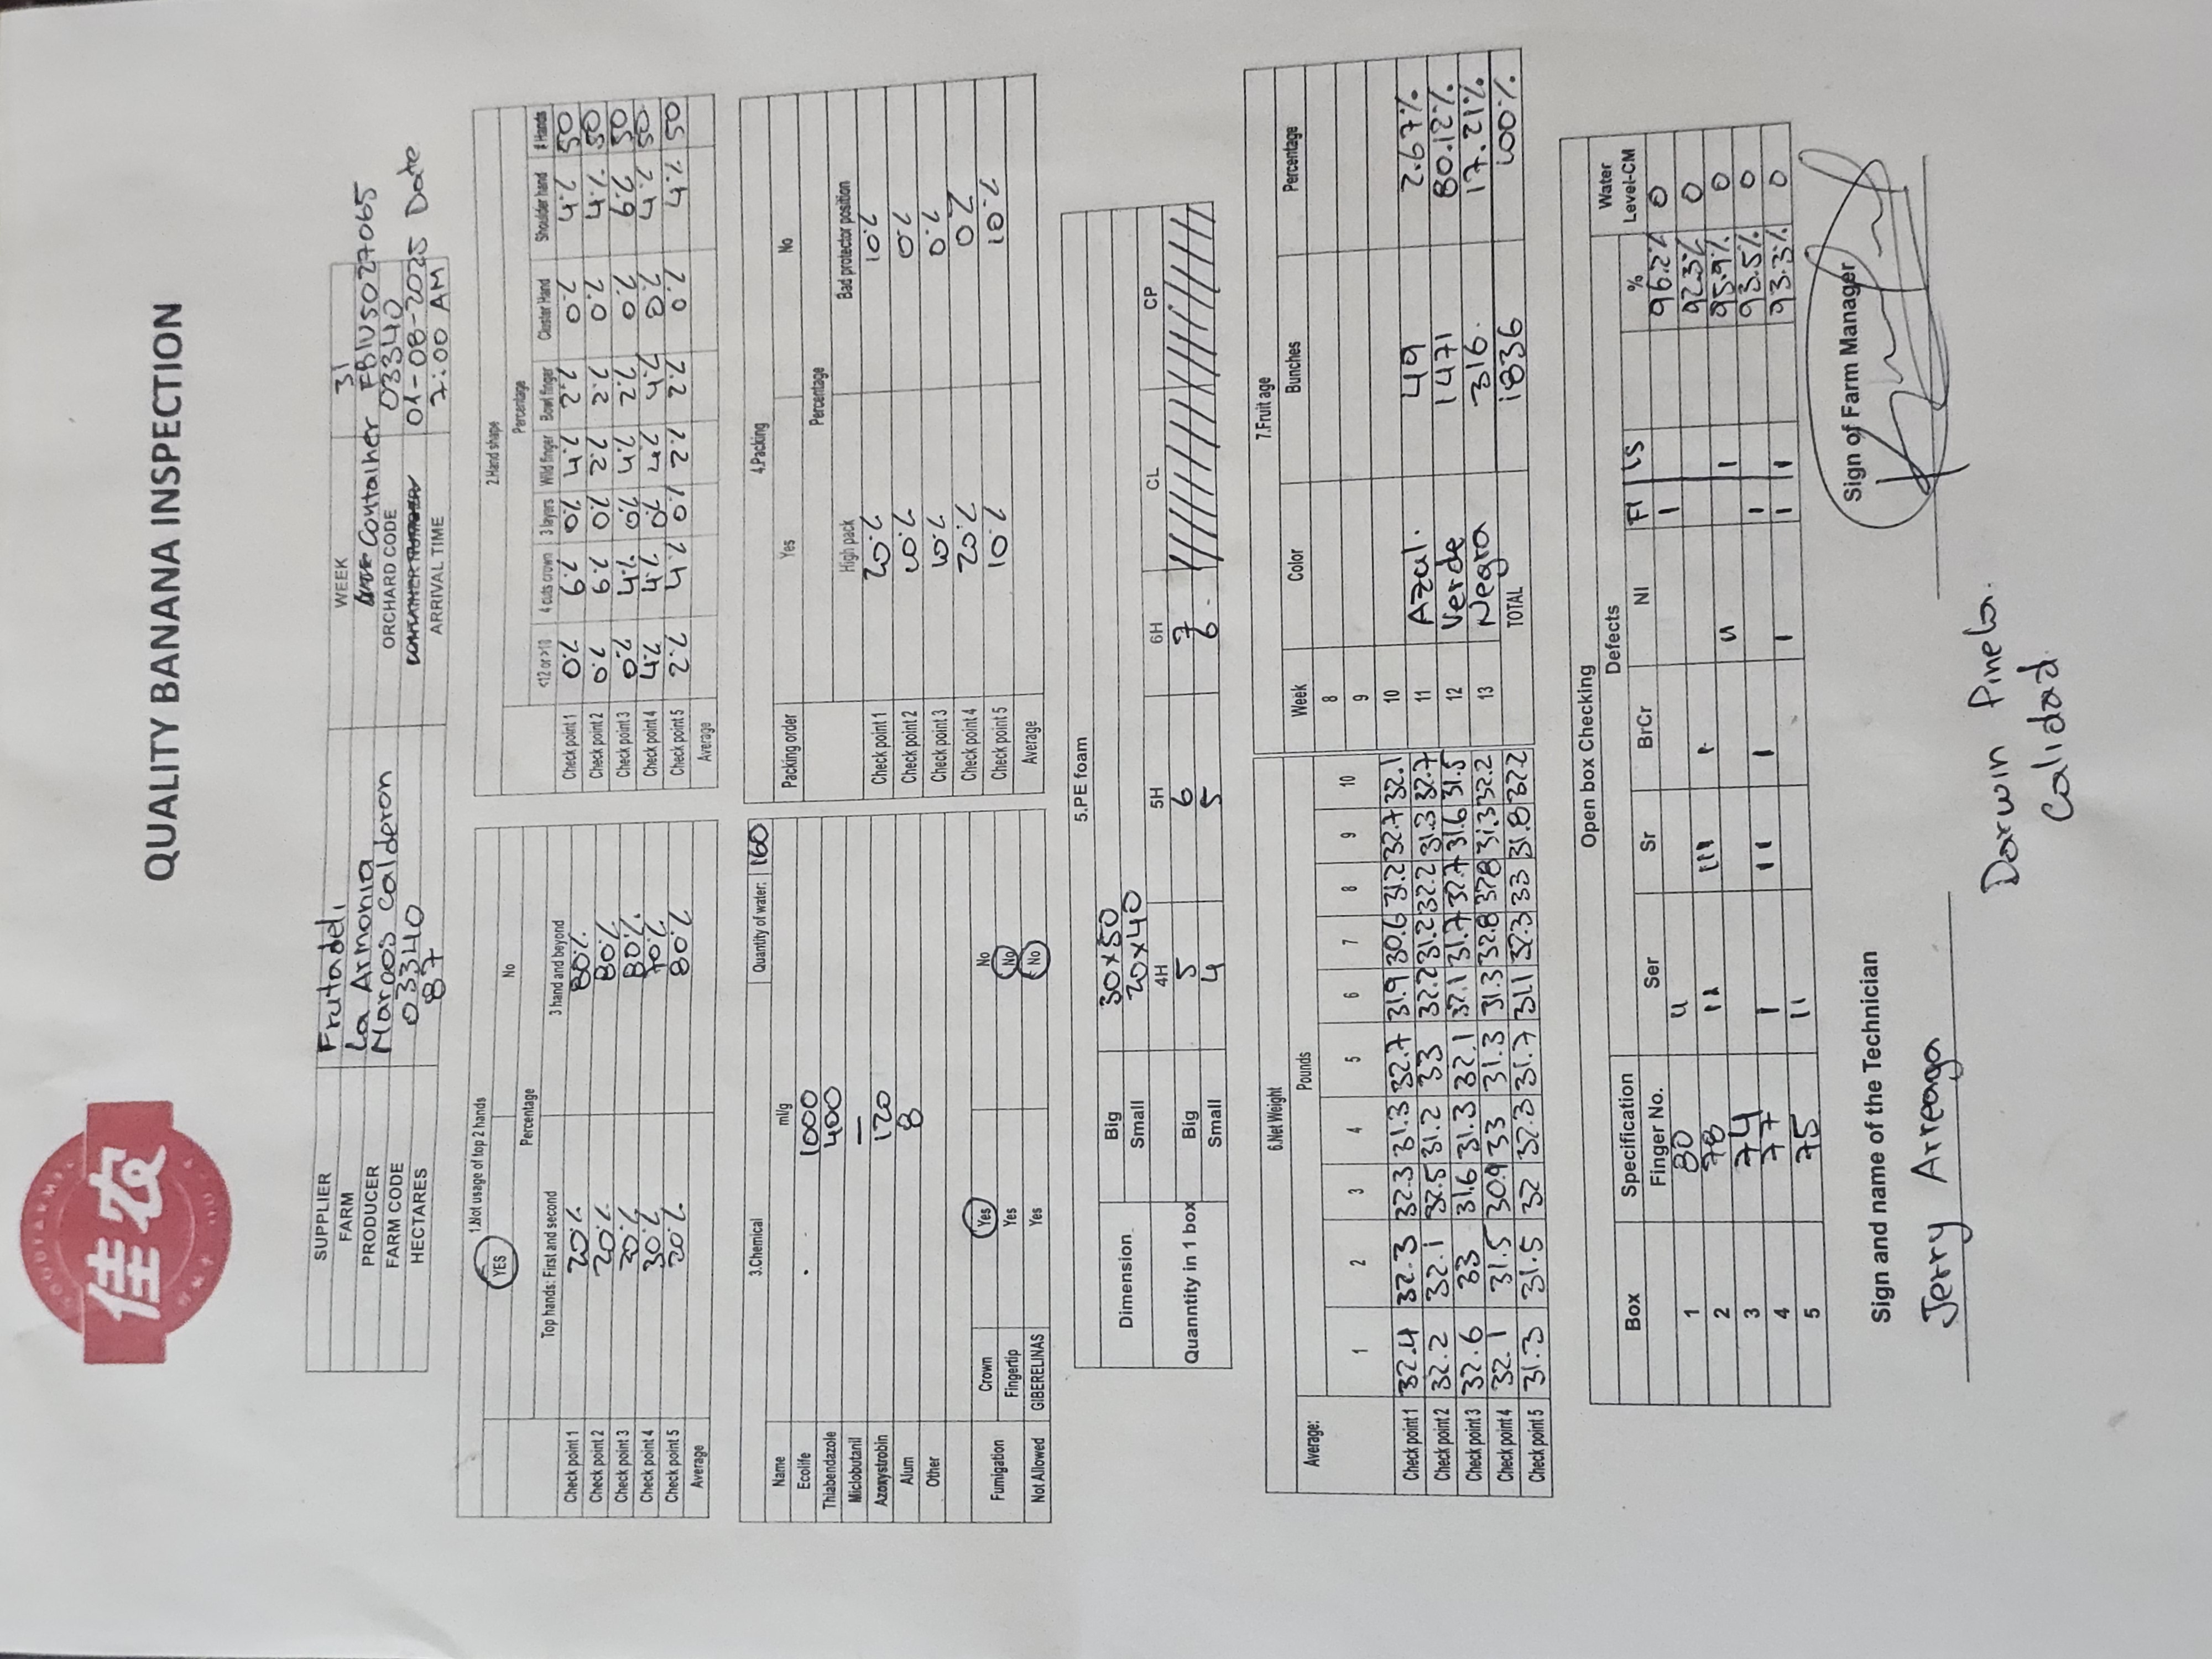 GOODFARMER
佳农
QUALITY BANANA INSPECTION
SUPPLIER Frutadeli WEEK 31
FARM La Armonia Container FBIU5027065
PRODUCER Marcos Calderon ORCHARD CODE 03340
FARM CODE 03340 CONTAINER NUMBER 01-08-2025 Date
HECTARES 87 ARRIVAL TIME 7:00 AM
1.Not usage of top 2 hands
YES No
Percentage
Top hands: First and second 3 hand and beyond
Check point 1 20% 80%
Check point 2 20% 80%
Check point 3 20% 80%
Check point 4 30% 70%
Check point 5 20% 80%
Average
2.Hand shape
Percentage
<12 or >18 4 cuts crown 3 layers Wild finger Bowl finger Cluster Hand Shoulder hand # Hands
Check point 1 0% 6% 0% 4% 2% 0% 4% 50
Check point 2 0% 6% 0% 2% 2% 0% 4% 50
Check point 3 0% 4% 0% 4% 2% 0% 6% 50
Check point 4 4% 4% 0% 4% 4% 0% 4% 50
Check point 5 2% 4% 0% 2% 2% 0% 4% 50
Average
3.Chemical Quantity of water: 160
Name ml/g
Ecolife 1000
Thiabendazole 400
Miclobutanil —
Azoxystrobin 120
Alum 8
Other
Fumigation Crown Yes No
Fingertip Yes No
Not Allowed GIBERELINAS Yes No
4.Packing
Packing order Yes No
Percentage
High pack Bad protector position
Check point 1 20% 10%
Check point 2 10% 0%
Check point 3 10% 0%
Check point 4 20% 0%
Check point 5 10% 10%
Average
5.PE foam
Dimension Big 30x50
Small 20x40
4H 5H 6H CL CP
Quanntity in 1 box Big 5 6 7
Small 4 5 6
6.Net Weight
Average: Pounds
1 2 3 4 5 6 7 8 9 10
Check point 1 32.4 32.3 32.3 31.3 32.7 31.9 30.6 31.2 32.7 32.1
Check point 2 32.2 32.1 32.5 31.2 33 32.2 31.2 32.2 31.3 32.7
Check point 3 32.6 33 31.6 31.3 32.1 32.1 31.7 32.7 31.6 31.5
Check point 4 32.1 31.5 30.9 33 31.3 31.3 32.8 32.8 31.3 32.2
Check point 5 31.3 31.5 32 32.3 31.7 31.1 32.3 33 31.8 32.2
7.Fruit age
Week Color Bunches Percentage
8
9
10
11 Azul. 49 2.67%
12 Verde 1471 80.12%
13 Negra 316. 17.21%
TOTAL 1836 100%
Open box Checking
Box Specification Defects Water Level-CM
Finger No. Ser Sr BrCr NI FI LS %
1 80 II I 96.2% 0
2 78 II III I 92.3% 0
3 74 II I 95.9% 0
4 77 I II I I 93.5% 0
5 75 II I I I 93.3% 0
Sign and name of the Technician
Jerry Arreaga
Sign of Farm Manager
Darwin Pinela.
Calidad